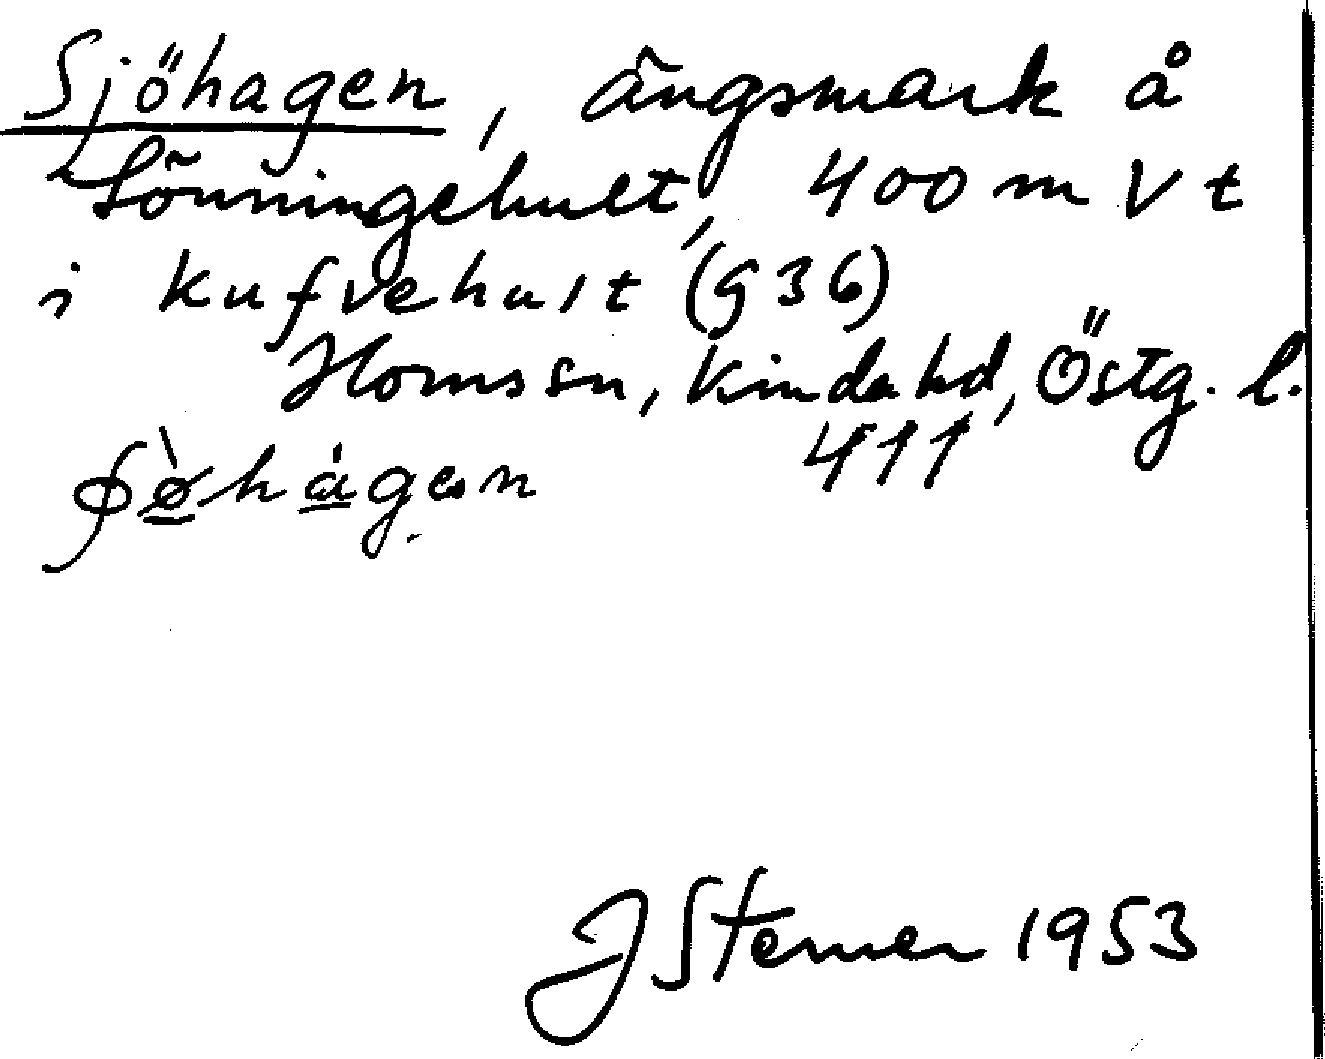 Sjöhagen, ängsmark å
Lönningehult, 400 m V t
i Kufvehult (936)
Horns sn, Kinda hd, Östg. l.
411
J Sterner 1953